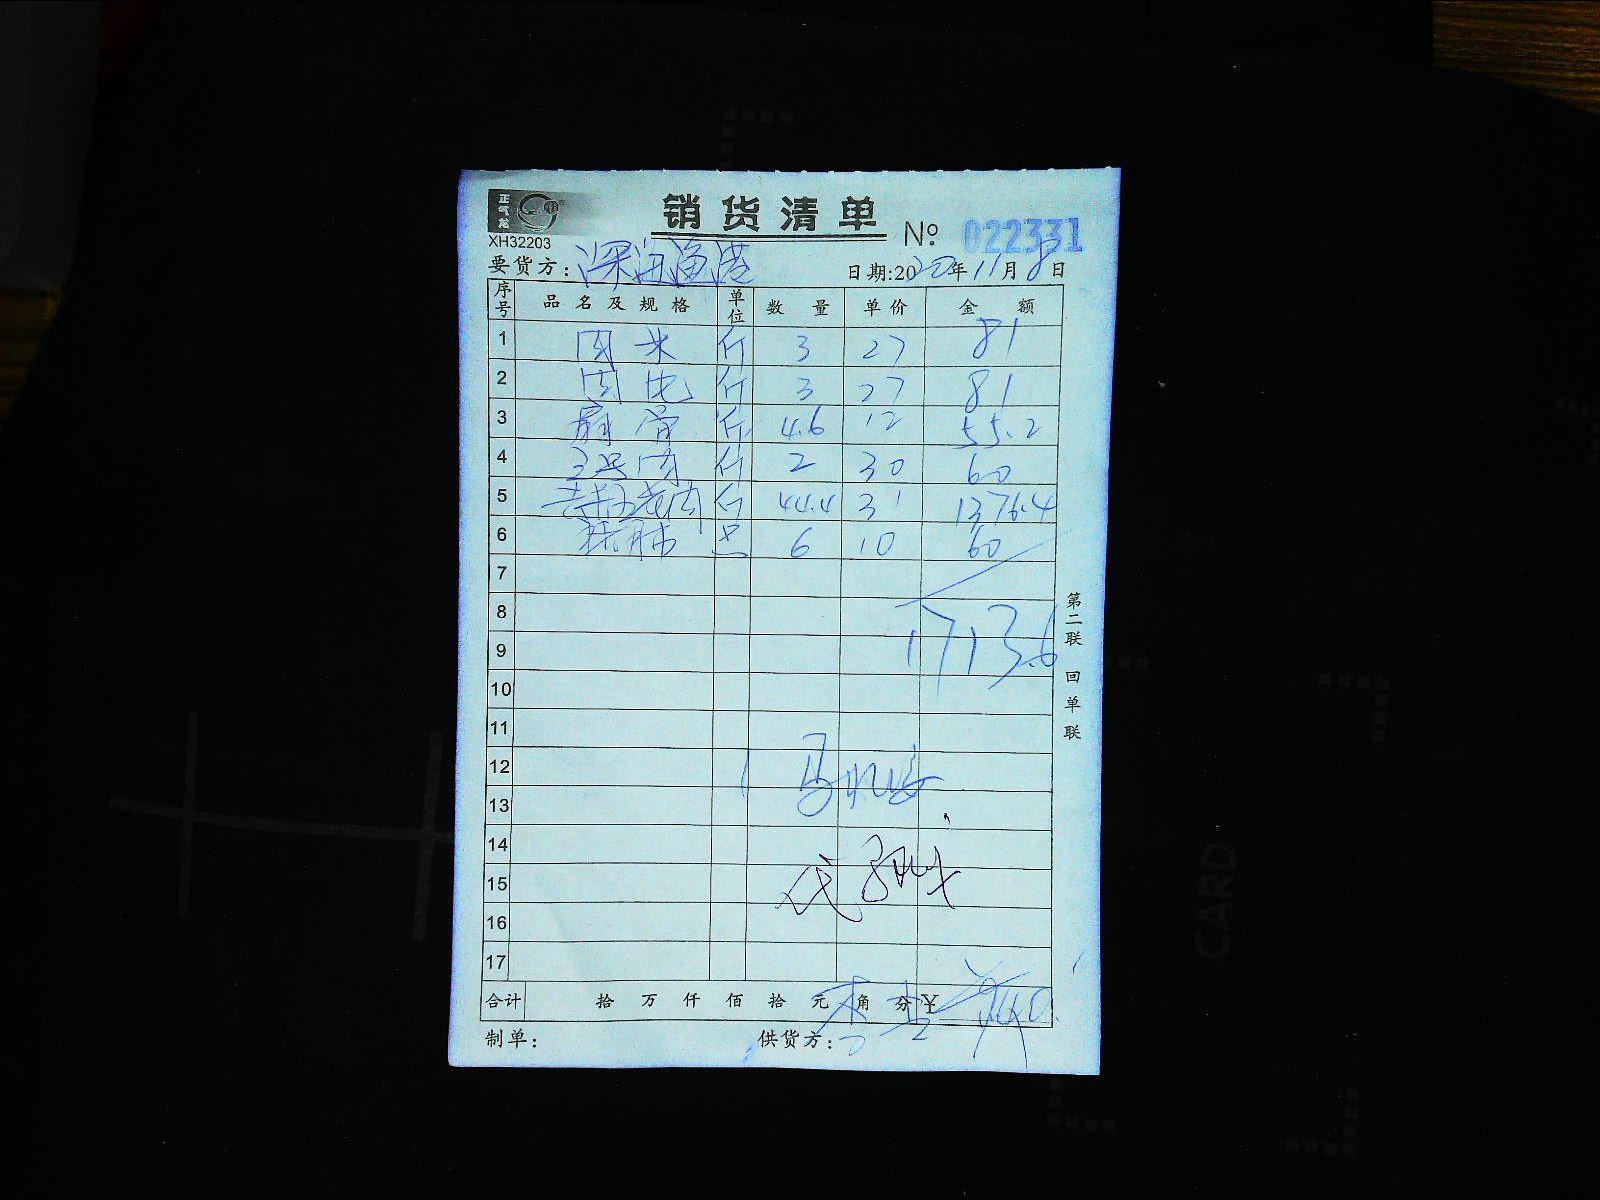 正气龙
销货清单
XH32203
№ 022331
要货方:深海渔港 日期:2020年11月8日
序号 品名及规格 单位 数量 单价 金额
1 肉米 斤 3 27 81
2 肉 斤 3 27 81
3 扇骨 斤 4.6 12 55.2
4 3号肉 斤 2 30 60
5 斤 44.4 31 1376.4
6 6 10 60
7
8
1713.6
9
10
11
12
13
14
15
16
17
合计 拾 万 仟 佰 拾 元 角 分 ¥
制单: 供货方:
第二联 回单联
CARD